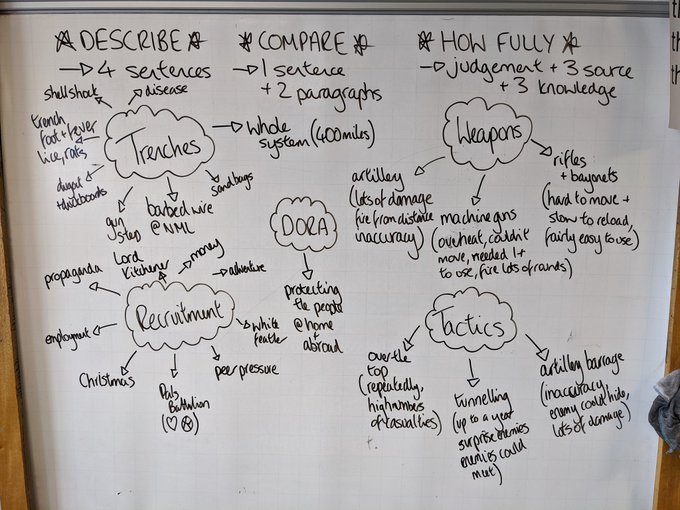 DESCRIBE
→ 4 sentences
COMPARE
→ 1 sentence
+ 2 paragraphs
HOW FULLY
→ judgement + 3 source
+ 3 knowledge
Trenches
shellshock
disease
trench
foot + fever
lice, rats
dugout
+ duckboards
gun
step
barbed wire
@ NML
sandbags
→ whole
system (400 miles)
Recruitment
Lord
Kitchener
money
adventure
white
feather
peer pressure
Pals
Battalion
Christmas
employment
propaganda
DORA
protecting
the people
@ home
+
abroad
Weapons
artillery
(lots of damage
fire from distance
inaccuracy)
machine guns
(overheat, couldn't
move, needed 1+
to use, fire lots of rounds)
rifles
+ bayonets
(hard to move +
slow to reload,
fairly easy to use)
Tactics
over the
top
(repeatedly,
high numbers
of casualties)
tunnelling
(up to a year
surprise enemies
enemies could
meet)
artillery barrage
(inaccuracy,
enemy could hide,
lots of damage)